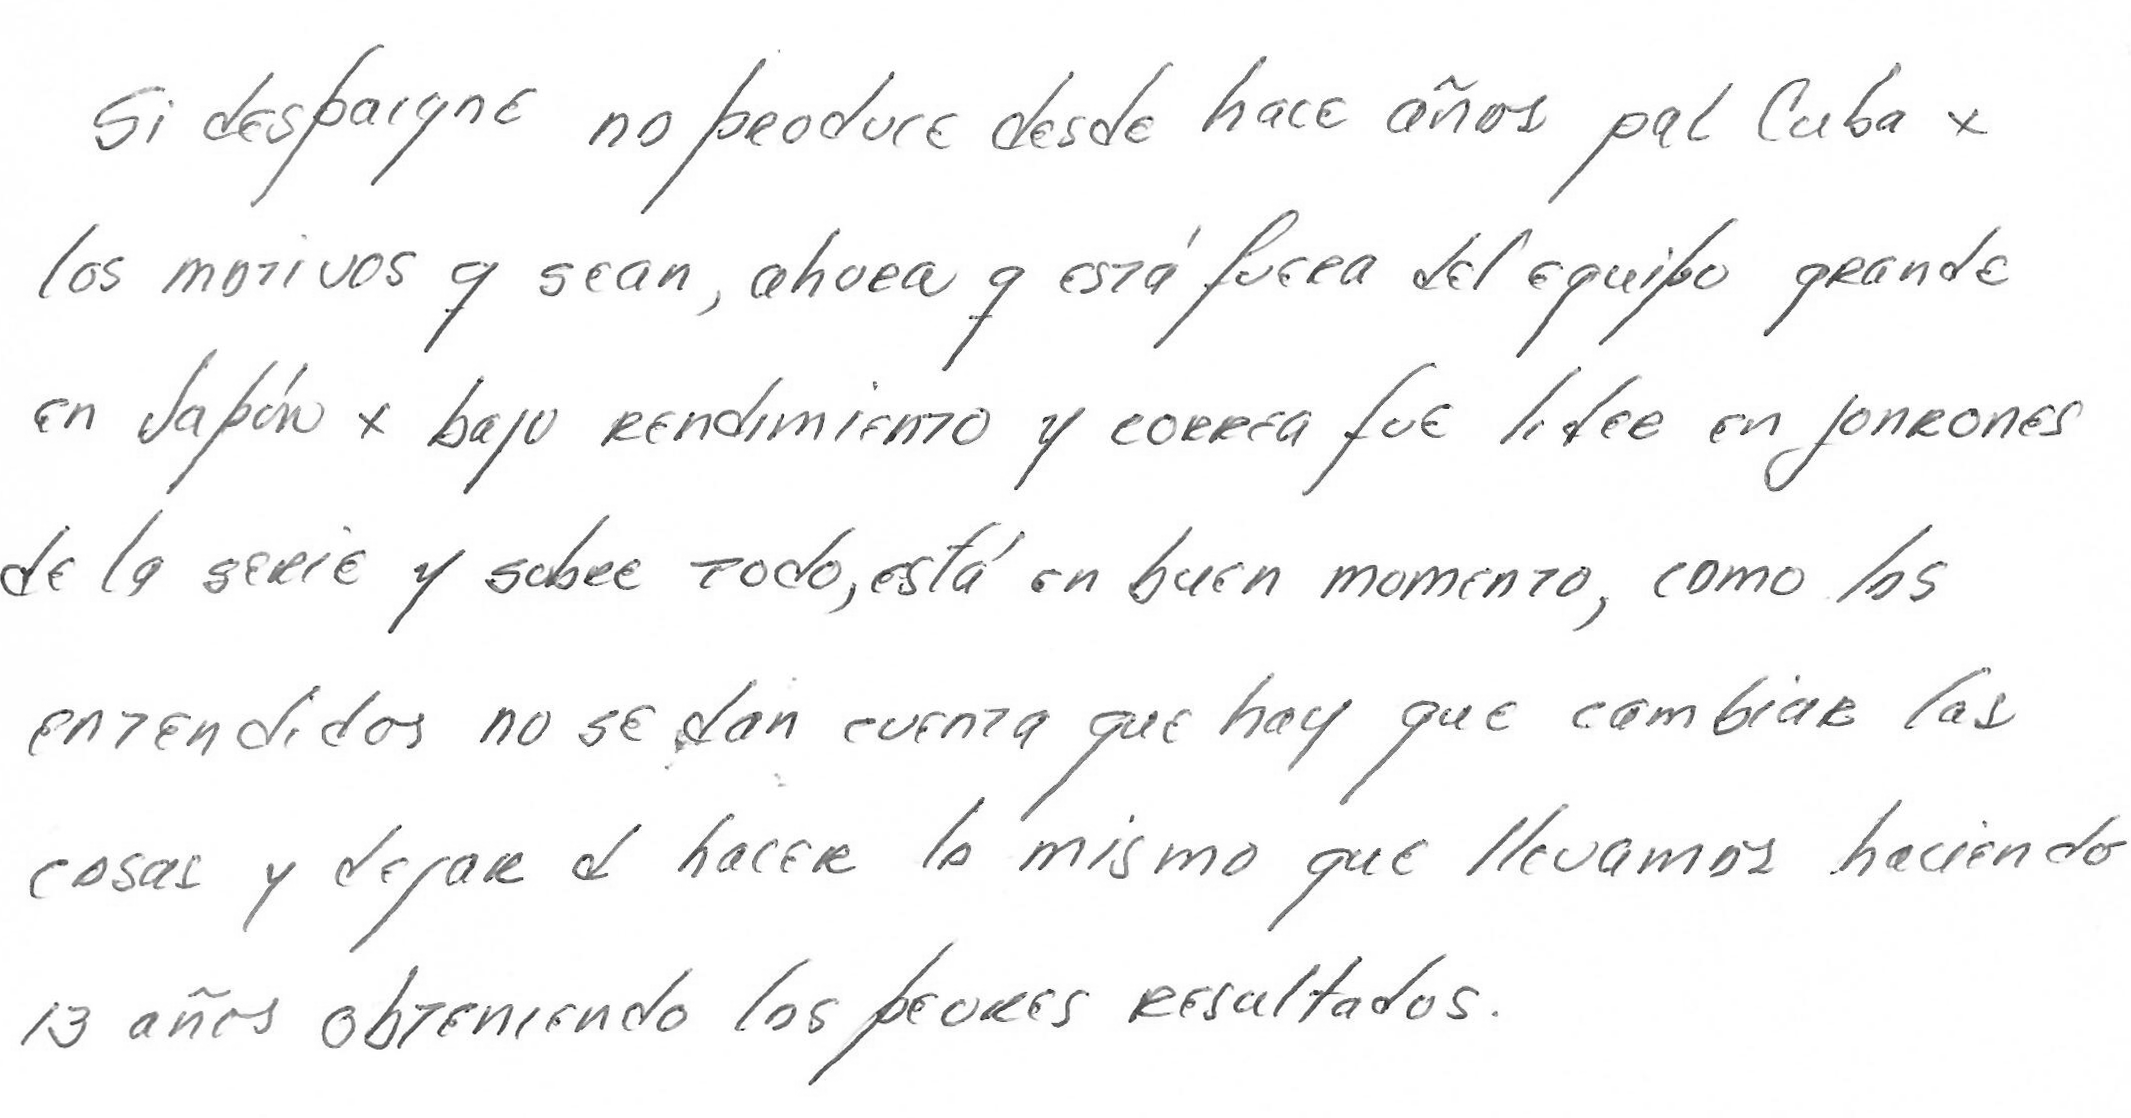 Si despaigne no produce desde hace años pal Cuba x
los motivos q sean, ahora q está fuera del equipo grande
en Japón x bajo rendimiento y correa fue lider en jonrones
de la serie y sobre todo, está en buen momento, como los
entendidos no se dan cuenta que hay que cambiar las
cosas y dejar d hacer lo mismo que llevamos haciendo
13 años obteniendo los peores resultados.